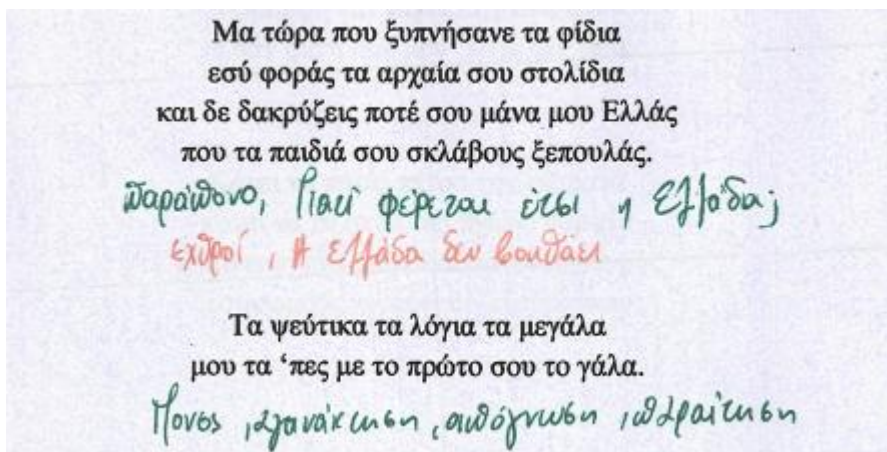 Μα τώρα που ξυπνήσανε τα φίδια
εσύ φοράς τα αρχαία σου στολίδια
και δε δακρύζεις ποτέ σου μάνα μου Ελλάς
που τα παιδιά σου σκλάβους ξεπουλάς.
Παράπονο, Γιατί φέρεται έτσι η Ελλάδα;
εχθροί, Η Ελλάδα δεν βοηθάει
Τα ψεύτικα τα λόγια τα μεγάλα
μου τα ‘πες με το πρώτο σου το γάλα.
Πονος, αγανάκτηση, απόγνωση, παραίτηση